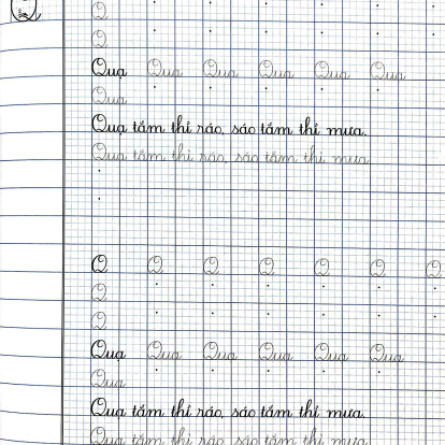 Q
Q
Q
Quạ Quạ Quạ Quạ Quạ Quạ
Quạ
Quạ tắm thì ráo, sáo tắm thì mưa.
Quạ tắm thì ráo, sáo tắm thì mưa.
Q Q Q Q Q Q Q
Q
Q
Quạ Quạ Quạ Quạ Quạ Quạ
Quạ
Quạ tắm thì ráo, sáo tắm thì mưa.
Quạ tắm thì ráo, sáo tắm thì mưa.